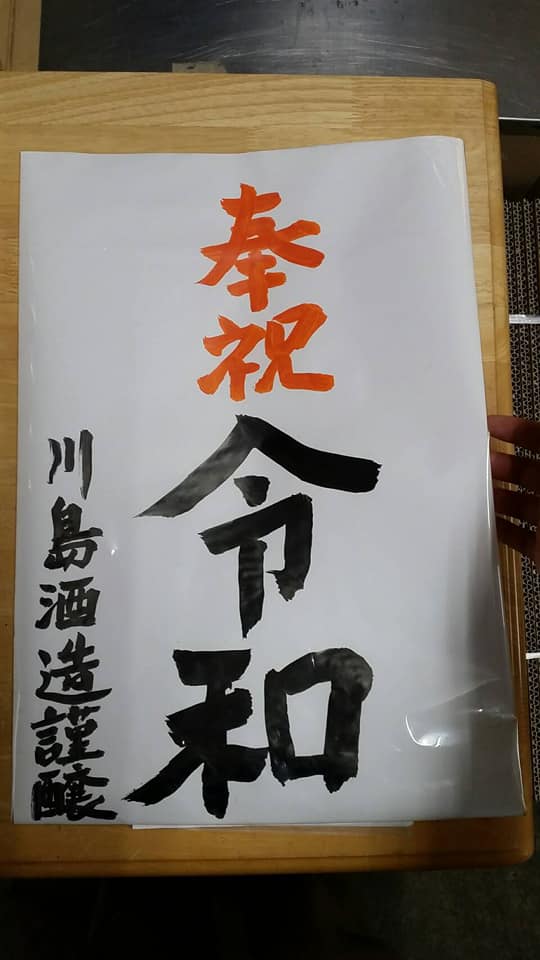 奉祝
令和
川島酒造謹醸